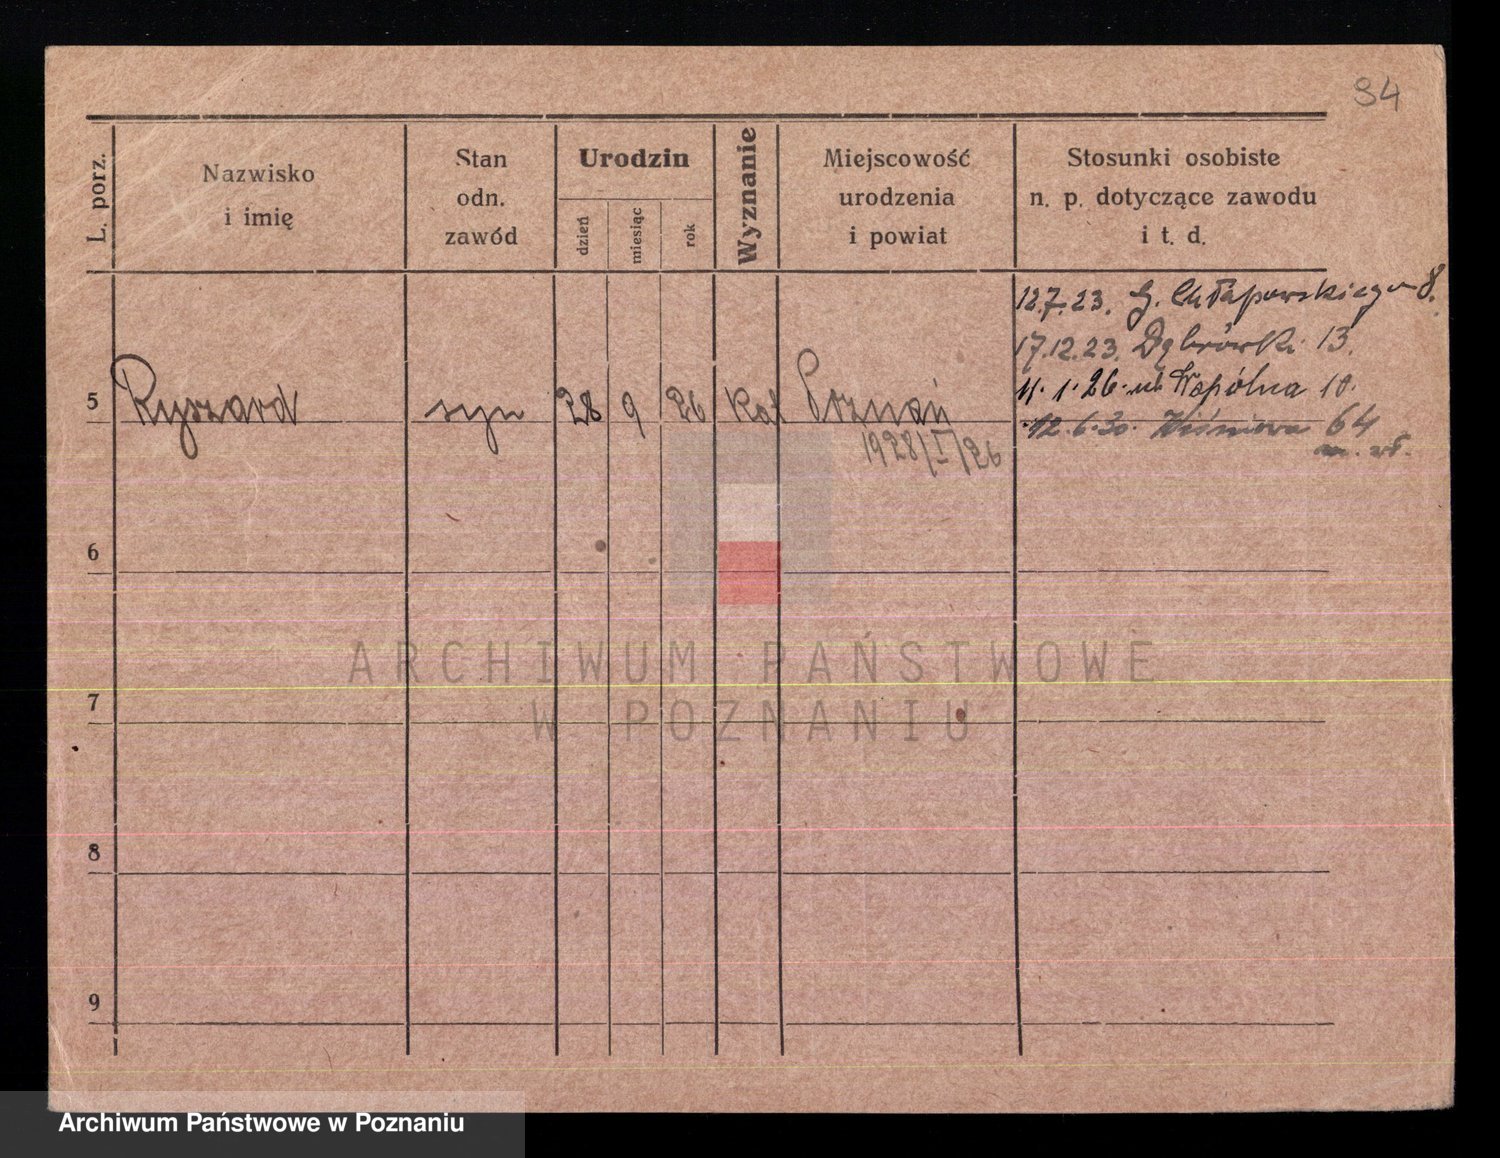 94
L. porz.
Nazwisko
i imię
Stan
odn.
zawód
Urodzin
dzień
miesiąc
rok
Wyznanie
Miejscowość
urodzenia
i powiat
Stosunki osobiste
n. p. dotyczące zawodu
i t. d.
12.7.23. G. Chłapowskiego 8.
17.12.23. Dąbrówki 13.
11.1.26. ul. Wspólna 10.
12.6.30. Wiśniowa 64
5 Ryszard syn 28 9 26 Kat Poznań
1928/I/26
6
7
8
9
ARCHIWUM PAŃSTWOWE
W POZNANIU
Archiwum Państwowe w Poznaniu